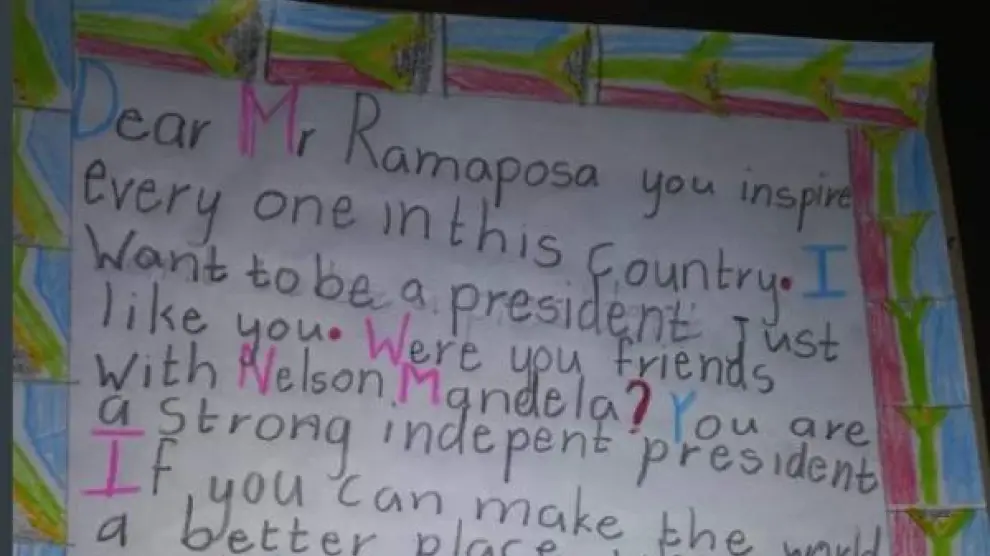 Dear Mr Ramaposa you inspire
every one in this Country. I
Want to be a president Just
like you. Were you friends
With Nelson Mandela? You are
a Strong indepent president
If you can make the world
a better place